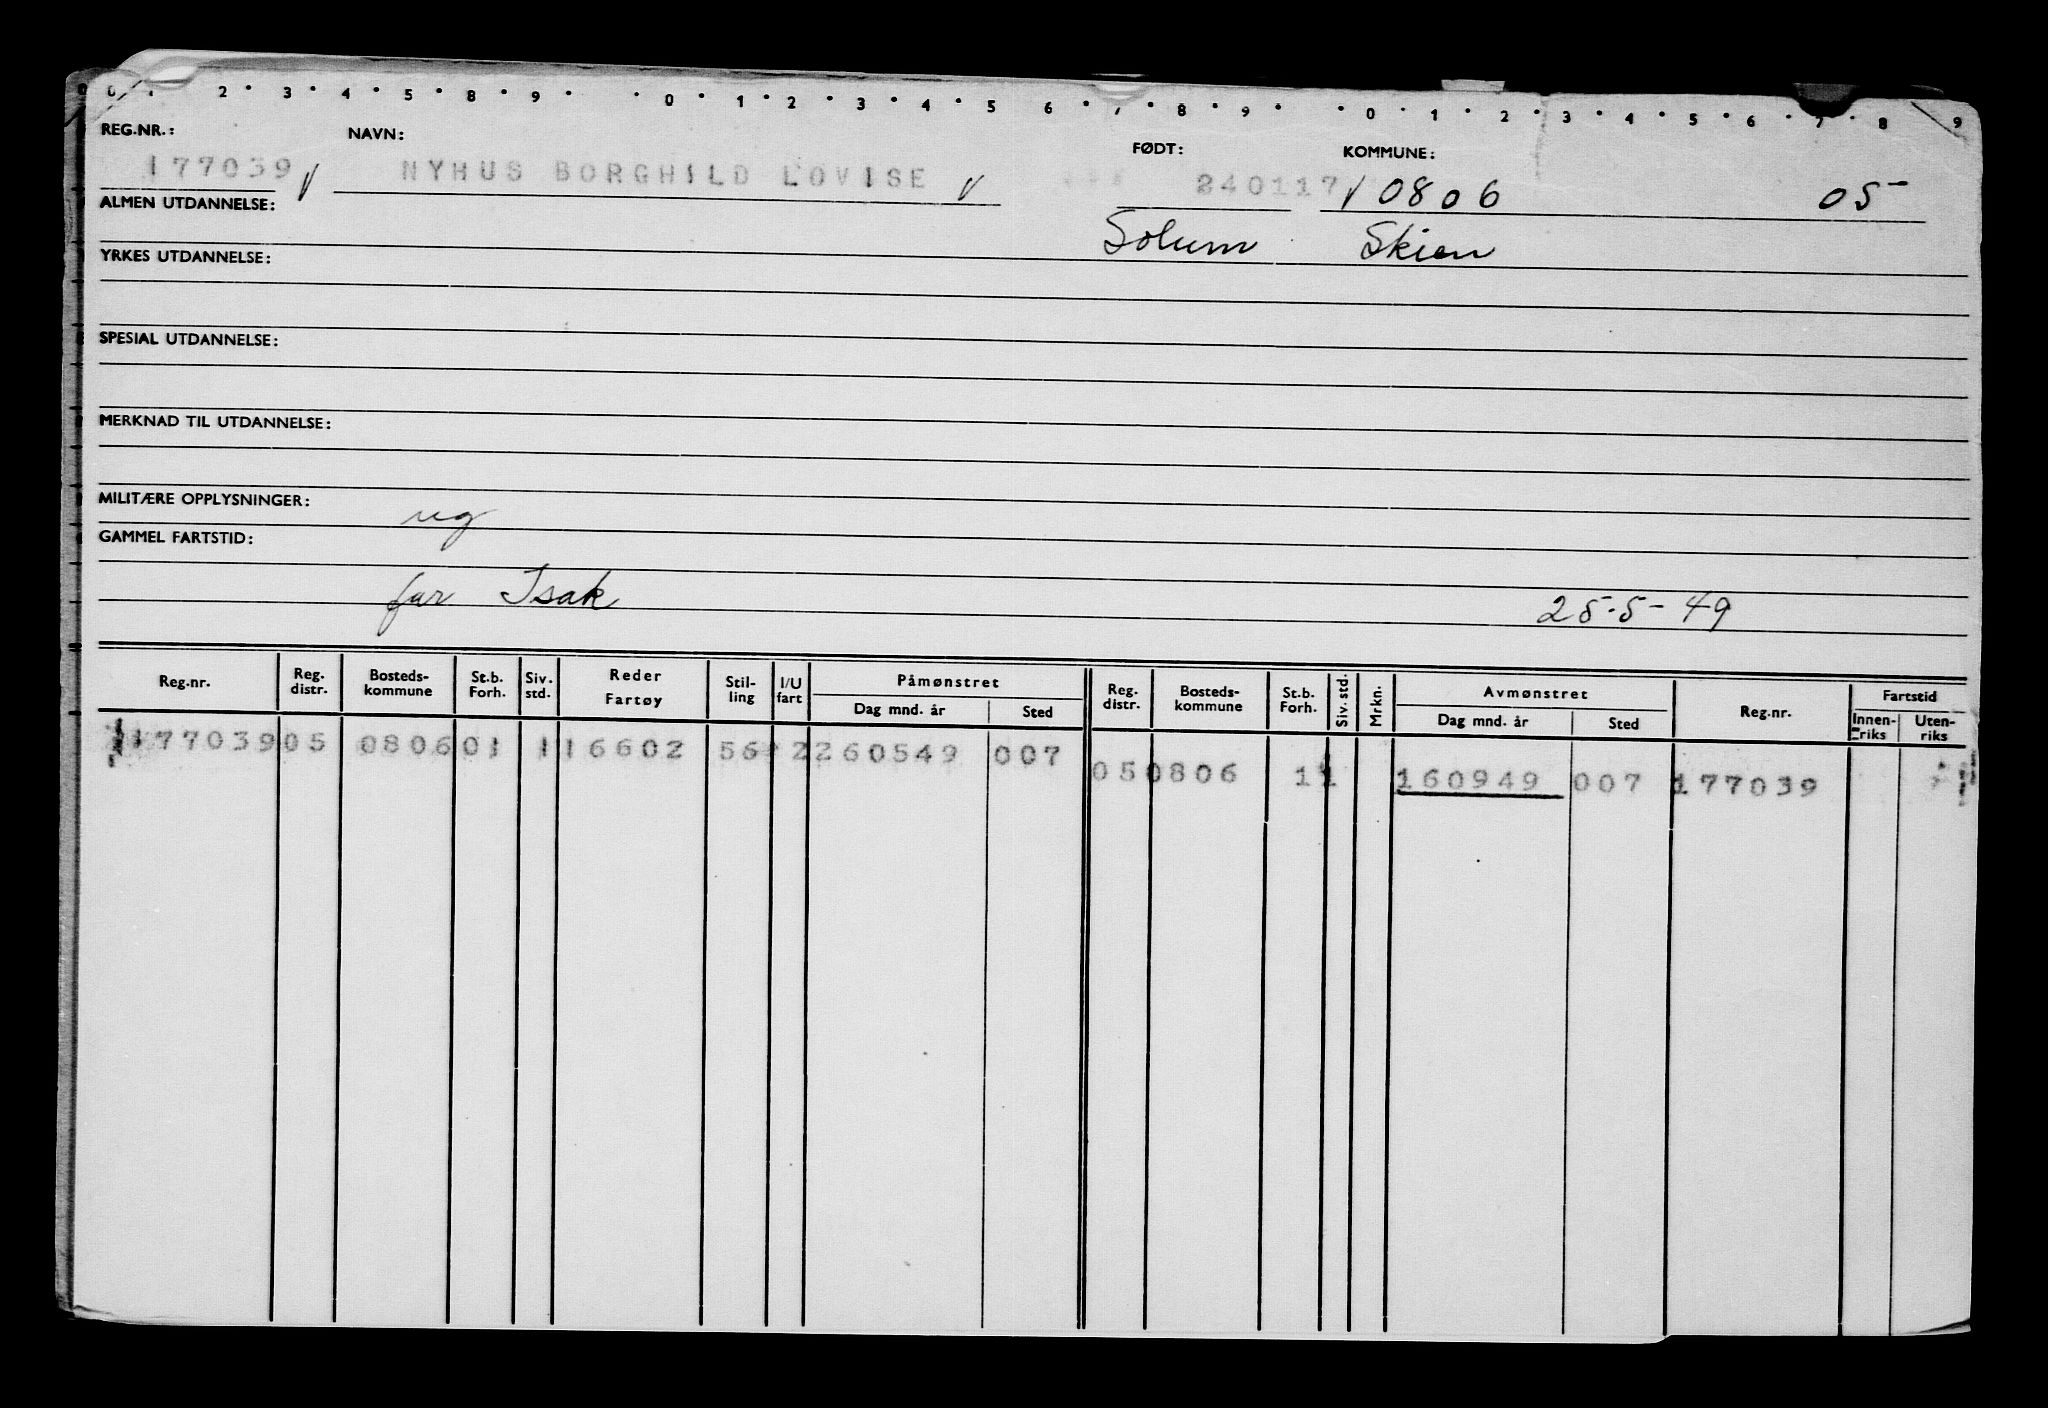 0 0 1 · 2 · 3 · 4 · 5 · 8 · 9 · · 0 · 1 · 2 · 3 · 4 · 5 6 · 7 · 8 · 9 · · 0 · 1 · 2 · 3 · 4 · 5 · 6 · 7 · 8 9
REG.NR.: NAVN: FØDT: KOMMUNE:
177039 √ NYHUS BORGHILD LOVISE √ 240117 √ 0806 05
ALMEN UTDANNELSE: Solum Skien
YRKES UTDANNELSE:
SPESIAL UTDANNELSE:
MERKNAD TIL UTDANNELSE:
MILITÆRE OPPLYSNINGER: ug
GAMMEL FARTSTID:
far Isak 25-5-49
Reg.nr. Reg. distr. Bosteds-kommune St.b. Forh. Siv. std. Reder Fartøy Stil-ling I/U fart Påmønstret Dag mnd. år Sted Reg. distr. Bosteds-kommune St.b. Forh. Siv. std. Mrkn. Avmønstret Dag mnd. år Sted Reg.nr. Fartstid Innen-riks Uten-riks
177039 05 0806 01 1 16602 56 2 260549 007
05 0806 1 1 160949 007 177039